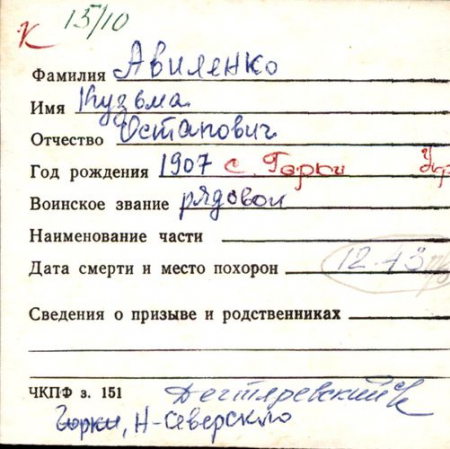 К 15/10
Фамилия Авиленко
Имя Кузьма
Отчество Остапович
Год рождения 1907 с. Горки Укр
Воинское звание рядовой
Наименование части
Дата смерти и место похорон 12.43
Сведения о призыве и родственниках
ЧКПФ з. 151 Дегтяревский с/с
Горки, Н-Северского